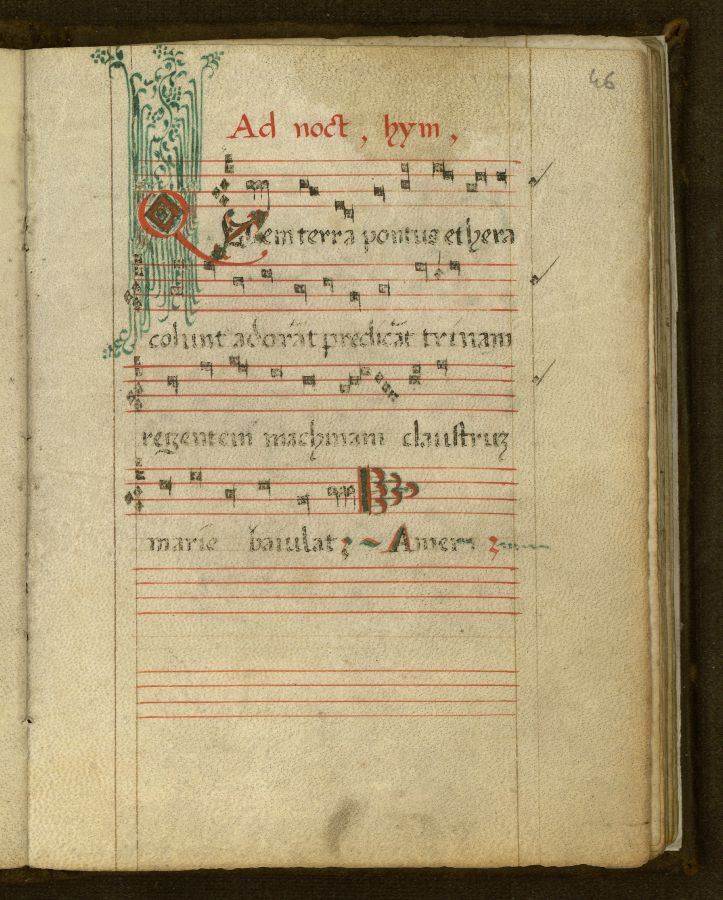 46
Ad noct, hym,
Quem terra pontus ethera
colunt adorāt predicāt trinam
regentem machinam claustruʒ
marie baiulat; Amen